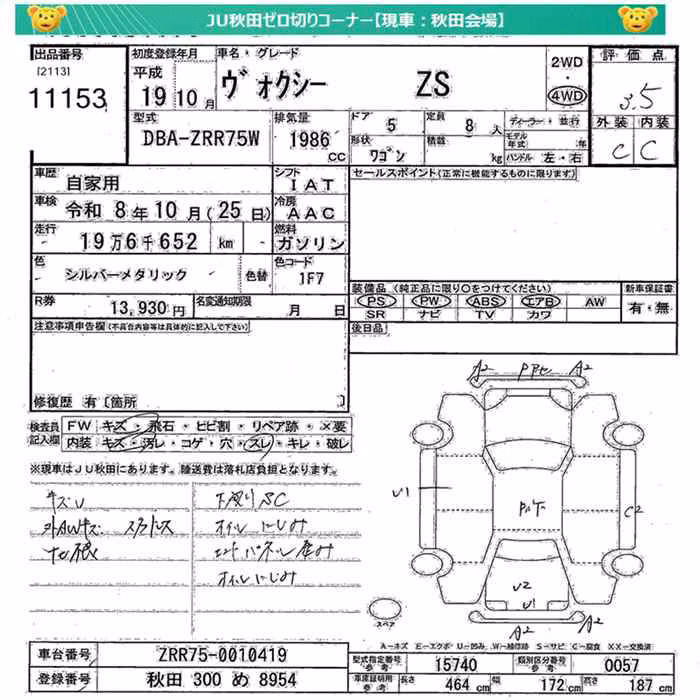 JU秋田ゼロ切りコーナー【現車：秋田会場】
出品番号 初度登録年月 車名・グレード 評価点
[2113] 平成 2WD
11153 19 10月 ヴォクシー ZS ・ 4WD 3.5
型式 排気量 ドア 5 定員 8人 ディーラー・並行 外装 内装
DBA-ZRR75W 1986 CC 形状 ワゴン 積載 kg モデル年式 年 C C
ハンドル 左・右
車歴 自家用 シフト IAT セールスポイント(正常に機能するものに限ります)
車検 令和 8年 10月(25日) 冷房 AAC
走行 19万6千652 km 燃料 ガソリン
色 シルバーメタリック 色替 色コード 1F7
装備品 (純正品に限り○をつけてください) 新車保証書
R券 13,930円 名変通知期限 月 日 PS PW ABS エアB AW 有・無
SR ナビ TV カワ
注意事項申告欄(不具合内容等は具体的に記入して下さい) 後日品
修復歴 有 [箇所 ]
検査員記入欄 FW キズ・飛石・ヒビ割・リペア跡・×要
内装 キズ・汚レ・コゲ・穴・スレ・キレ・破レ
※現車はJU秋田にあります。陸送費は落札店負担となります。
キズU 下廻りSC
外AWキズ スタッドレス オイルにじみ
ナビ根 エンドパネル歪み
オイルにじみ
A2 A2
U1 C2
U2
U1
A2 A2
スペア
A=キズ E=エクボ U=凹み W=補修跡 S=サビ C=腐食 XX=交換済
車台番号 ZRR75-0010419 型式指定番号 参考 15740 類別区分番号 参考 0057
登録番号 秋田 300 め 8954 車庫証明用 参考 長さ 464 cm 幅 172 cm 高さ 187 cm